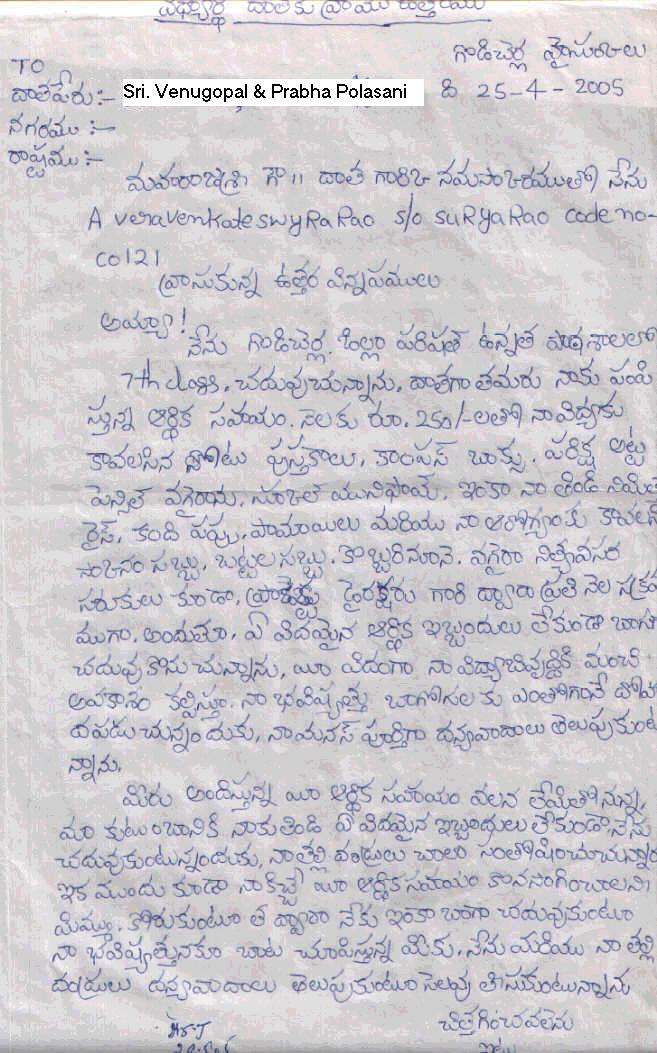 విద్యార్థి దాతకు వ్రాయు ఉత్తరము
గొడిచెర్ల
TO
దాతపేరు:- Sri. Venugopal & Prabha Polasani ది 25-4-2005
నగరము :-
రాష్ట్రము :-
మహారాజశ్రీ గౌ॥ దాత గారికి నమస్కారములతో నేను
A veravenkateswyRaRao s/o suRyaRao code no-
co121
వ్రాసుకున్న ఉత్తర విన్నపములు
అయ్యా!
నేను గొడిచెర్ల. జిల్లా పరిషత్ ఉన్నత పాఠశాలలో
7th class. చదువుచున్నాను. దాతగా తమరు నాకు పంపి
స్తున్న ఆర్థిక సహాయం. నెలకు రూ. 250/-లతో నా విద్యకు
కావలసిన నోటు పుస్తకాలు, కాంపస్ బాక్సు. పరీక్ష అట్ట
పెన్సిల్ వగైరాలు, స్కూల్ యునిఫాం, ఇంకా నా తిండి నిమిత
రైస్, కంది పప్పు, పామాయిలు మరియు నా ఆరోగ్యంకు కావలసి
సబ్బు, బట్టల సబ్బు. కొబ్బరినూనె. వగైరా నిత్యావసర
సరుకులు కూడా, ప్రాజెక్టు డైరక్టరు గారి ద్వారా ప్రతి నెల సక్రమ
ముగా. అందుతూ. ఏ విదమైన ఆర్థిక ఇబ్బందులు లేకుండా బాగా
చదువు కొనుచున్నాను, యీ విదంగా నా విద్యాబివృద్ధికి మంచి
అవకాశం కల్పిస్తూ. నా భవిష్యత్తు బాగోనలకు ఎంతోగానే తోడ
దపడుచున్నందుకు, నా మనస్ పూర్తిగా ధన్యవాదాలు తెలుపుకుంట
న్నాను.
మీరు అందిస్తున్న యీ ఆర్థిక సహాయం వలన లేమితోనున్న,
మా కుటుంబానికి నాకు తిండి ఏ విదమైన ఇబ్బందులు లేకుండా నేను
చదువుకుంటున్నందుకు, నా తల్లి దండ్రులు చాలా సంతోషించుచున్నారు
ఇక ముందు కూడా నాకిచ్చే యీ ఆర్థిక సహాయం కొనసాగించాలని
మిమ్ము. కోరుకుంటూ త ద్వారా నేకు ఇంకా బాగా చదువుకుంటూ
నా భవిష్యత్తునకూ బాట చూపిస్తున్న మీకు, నేను మరియు నా తల్లి
దండ్రులు ధన్యవాదాలు తెలుపుకుంటూ సెలవు తీసుకుంటున్నాను
చిత్తగించవలెను
ఇట్లు